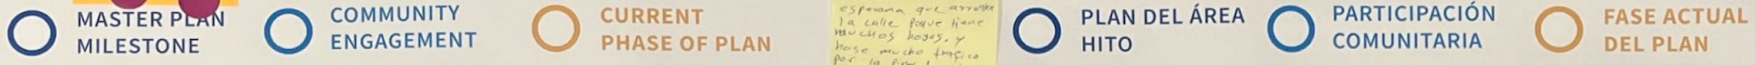 MASTER PLAN
MILESTONE
COMMUNITY
ENGAGEMENT
CURRENT
PHASE OF PLAN
esperama que arregla
la calle poque tiene
muchos hogos, y
hase mucho trafico
por la
PLAN DEL ÁREA
HITO
PARTICIPACIÓN
COMUNITARIA
FASE ACTUAL
DEL PLAN